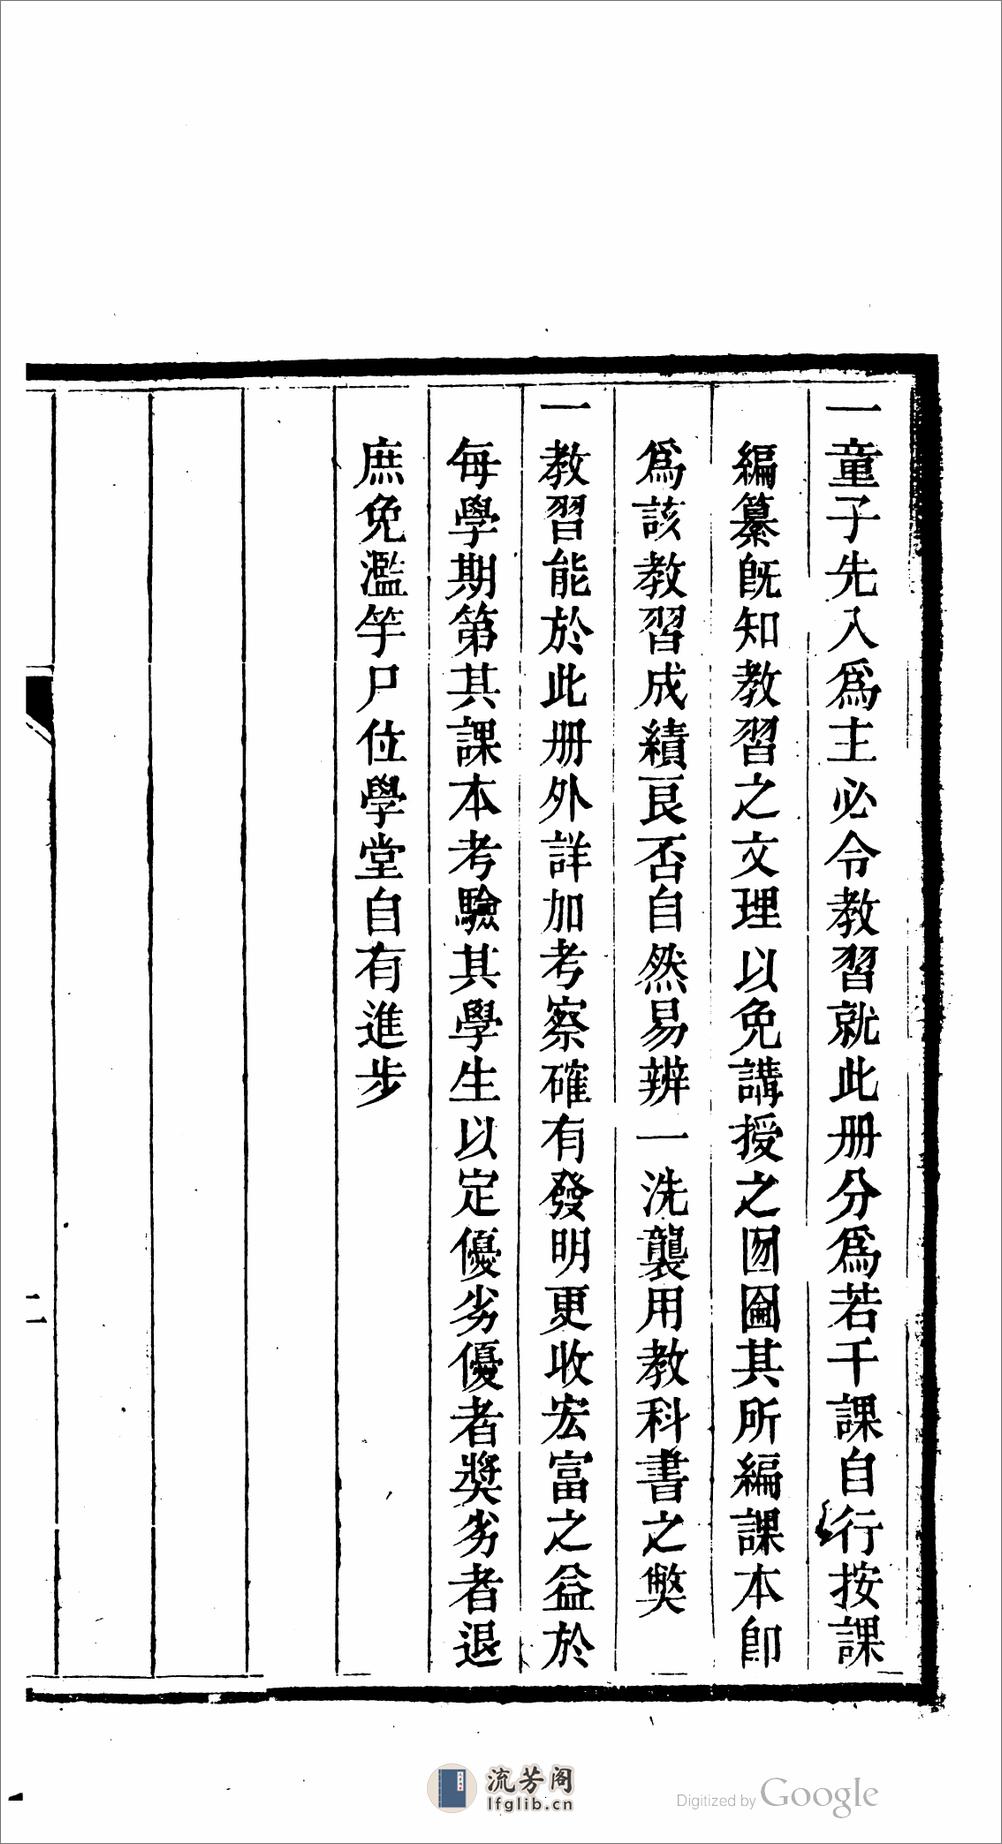 一童子先入爲主必令教習就此册分爲若干課自行按課
編纂既知教習之文理以免講授之囫圇其所編課本卽
爲該教習成績良否自然易辨一洗襲用教科書之獘
一教習能於此册外詳加考察確有發明更收宏富之益於
每學期第其課本考驗其學生以定優劣優者獎劣者退
庶免濫竽尸位學堂自有進步
二
流芳阁
lfglib.cn
Digitized by Google